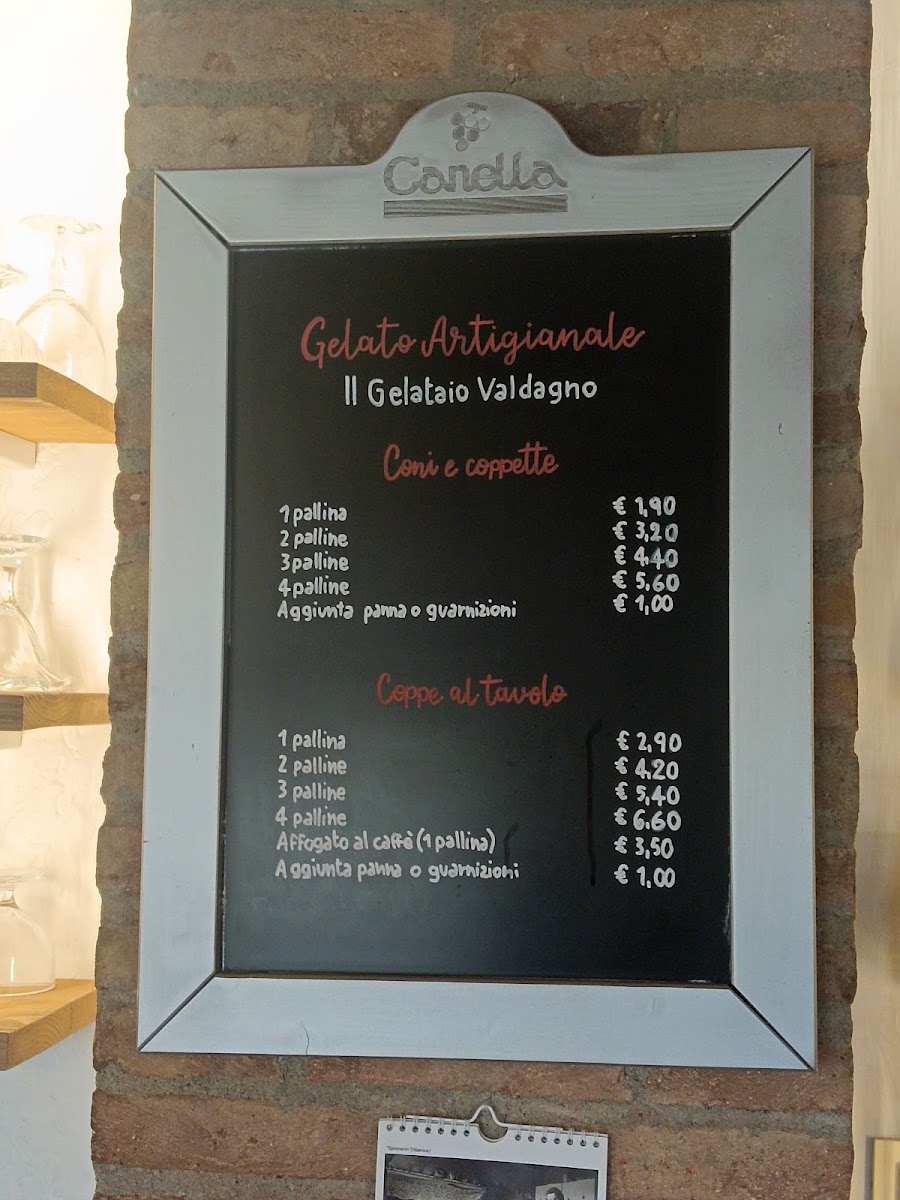 Canella
Gelato Artigianale
Il Gelataio Valdagno
Coni e coppette
1 pallina € 1,90
2 palline € 3,20
3 palline € 4,40
4 palline € 5,60
Aggiunta panna o guarnizioni € 1,00
Coppe al tavolo
1 pallina € 2,90
2 palline € 4,20
3 palline € 5,40
4 palline € 6,60
Affogato al caffè (1 pallina) € 3,50
Aggiunta panna o guarnizioni € 1,00